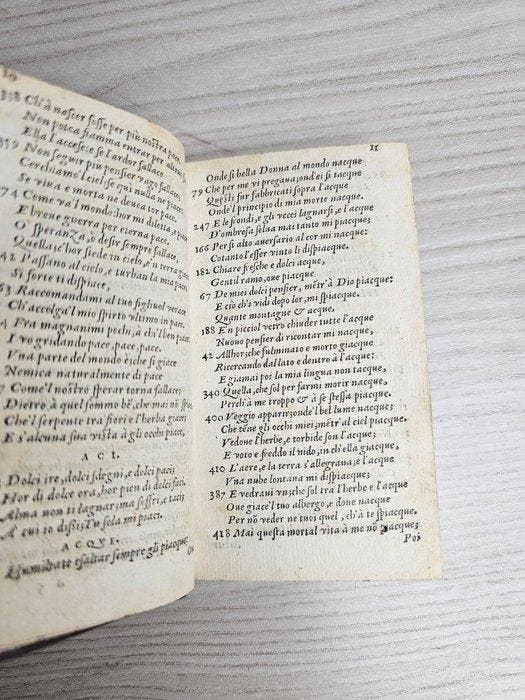 10
338 Ch'à nascer fosse per più nostra pace.
Non potea fiamma entrar per altrui
Ella l'accese: e se l'ardor fallace
359 Non seguir più pensier vago fallace
Cerchiamo'l ciel, se qui nulla ne piace
Se viva e morta ne devea tor pace.
74 Come va'l mondo: hor mi diletta, e piace
E breve guerra per eterna pace.
O speranza, o desir sempre fallace,
Quella, c'hor siede in cielo, e'n terra giace
42 Passano al cielo, e turban la mia pace
Si forte ti dispiace,
53 Raccomandami al tuo figliuol verace
Ch'accolga'l mio spirto vltimo in pace.
4 Fra magnanimi pochi, à chi'l ben piace
I vo gridando pace, pace, pace.
Vna parte del mondo è; che si giace
Nemica naturalmente di pace
7 Come'l nostro sperar torna fallace;
Dietro à quel sommo bē, che mai nō spiace
Che'l serpente tra fiori e l'herba giace,
E s'alcuna sua vista à gli occhi piace,
ACI.
Dolci ire, dolci sdegni, e dolci paci;
Hor di dolce ora, hor pien di dolci faci.
Alma non ti lagnar; ma soffri, e taci;
A cui io dissi; tu sola mi piaci.
ACQVE.
Humiltate essaltar sempre gli piacque;
On
11
Onde si bella Donna al mondo nacque
79 Che per me vi pregava; ond'ei si tacque
Questi fur fabbricati sopra l'acque
Onde'l principio di mia morte nacque.
247 E le frondi, e gli vccei lagnarsi, e l'acque
D'ombrosa selua mai tanto mi piacque;
166 Per si alto auersario al cor mi nacque:
Cotanto l'esser vinto li dispiacque.
182 Chiare fresche e dolci acque,
Gentil ramo, oue piacque
67 De miei dolci pensier, métr'à Dio piacque:
E ciò ch'i vidi dopo lor, mi spiacque.
Quante montagne & acque,
188 E'n picciol vetro chiuder tutte l'acque
Nuouo pensier di ricontar mi nacque,
42 Allhor; che fulminato e morto giacque
Ricercando dal lato e dentro à l'acque:
E giamai poi la mia lingua non tacque,
340 Quella, che sol per farmi morir nacque,
Perch'à me troppo & à se stessa piacque.
400 Veggio apparir; onde'l bel lume nacque;
Che tēne gli occhi miei; mētr'al ciel piacque.
Vedoue l'herbe, e torbide son l'acque;
E voto e freddo il nido, in ch'ella giacque,
410 L'aere, e la terra s'allegraua; e l'acque
Vna nube lontana mi dispiacque;
387 E vedrani vn; che sol tra l'herbe e l'acque
Oue giace'l tuo albergo, e doue nacque
Per nō veder ne tuoi quel, ch'à te spiacque.
418 Mai questa mortal vita à me nō piacque;
Poi